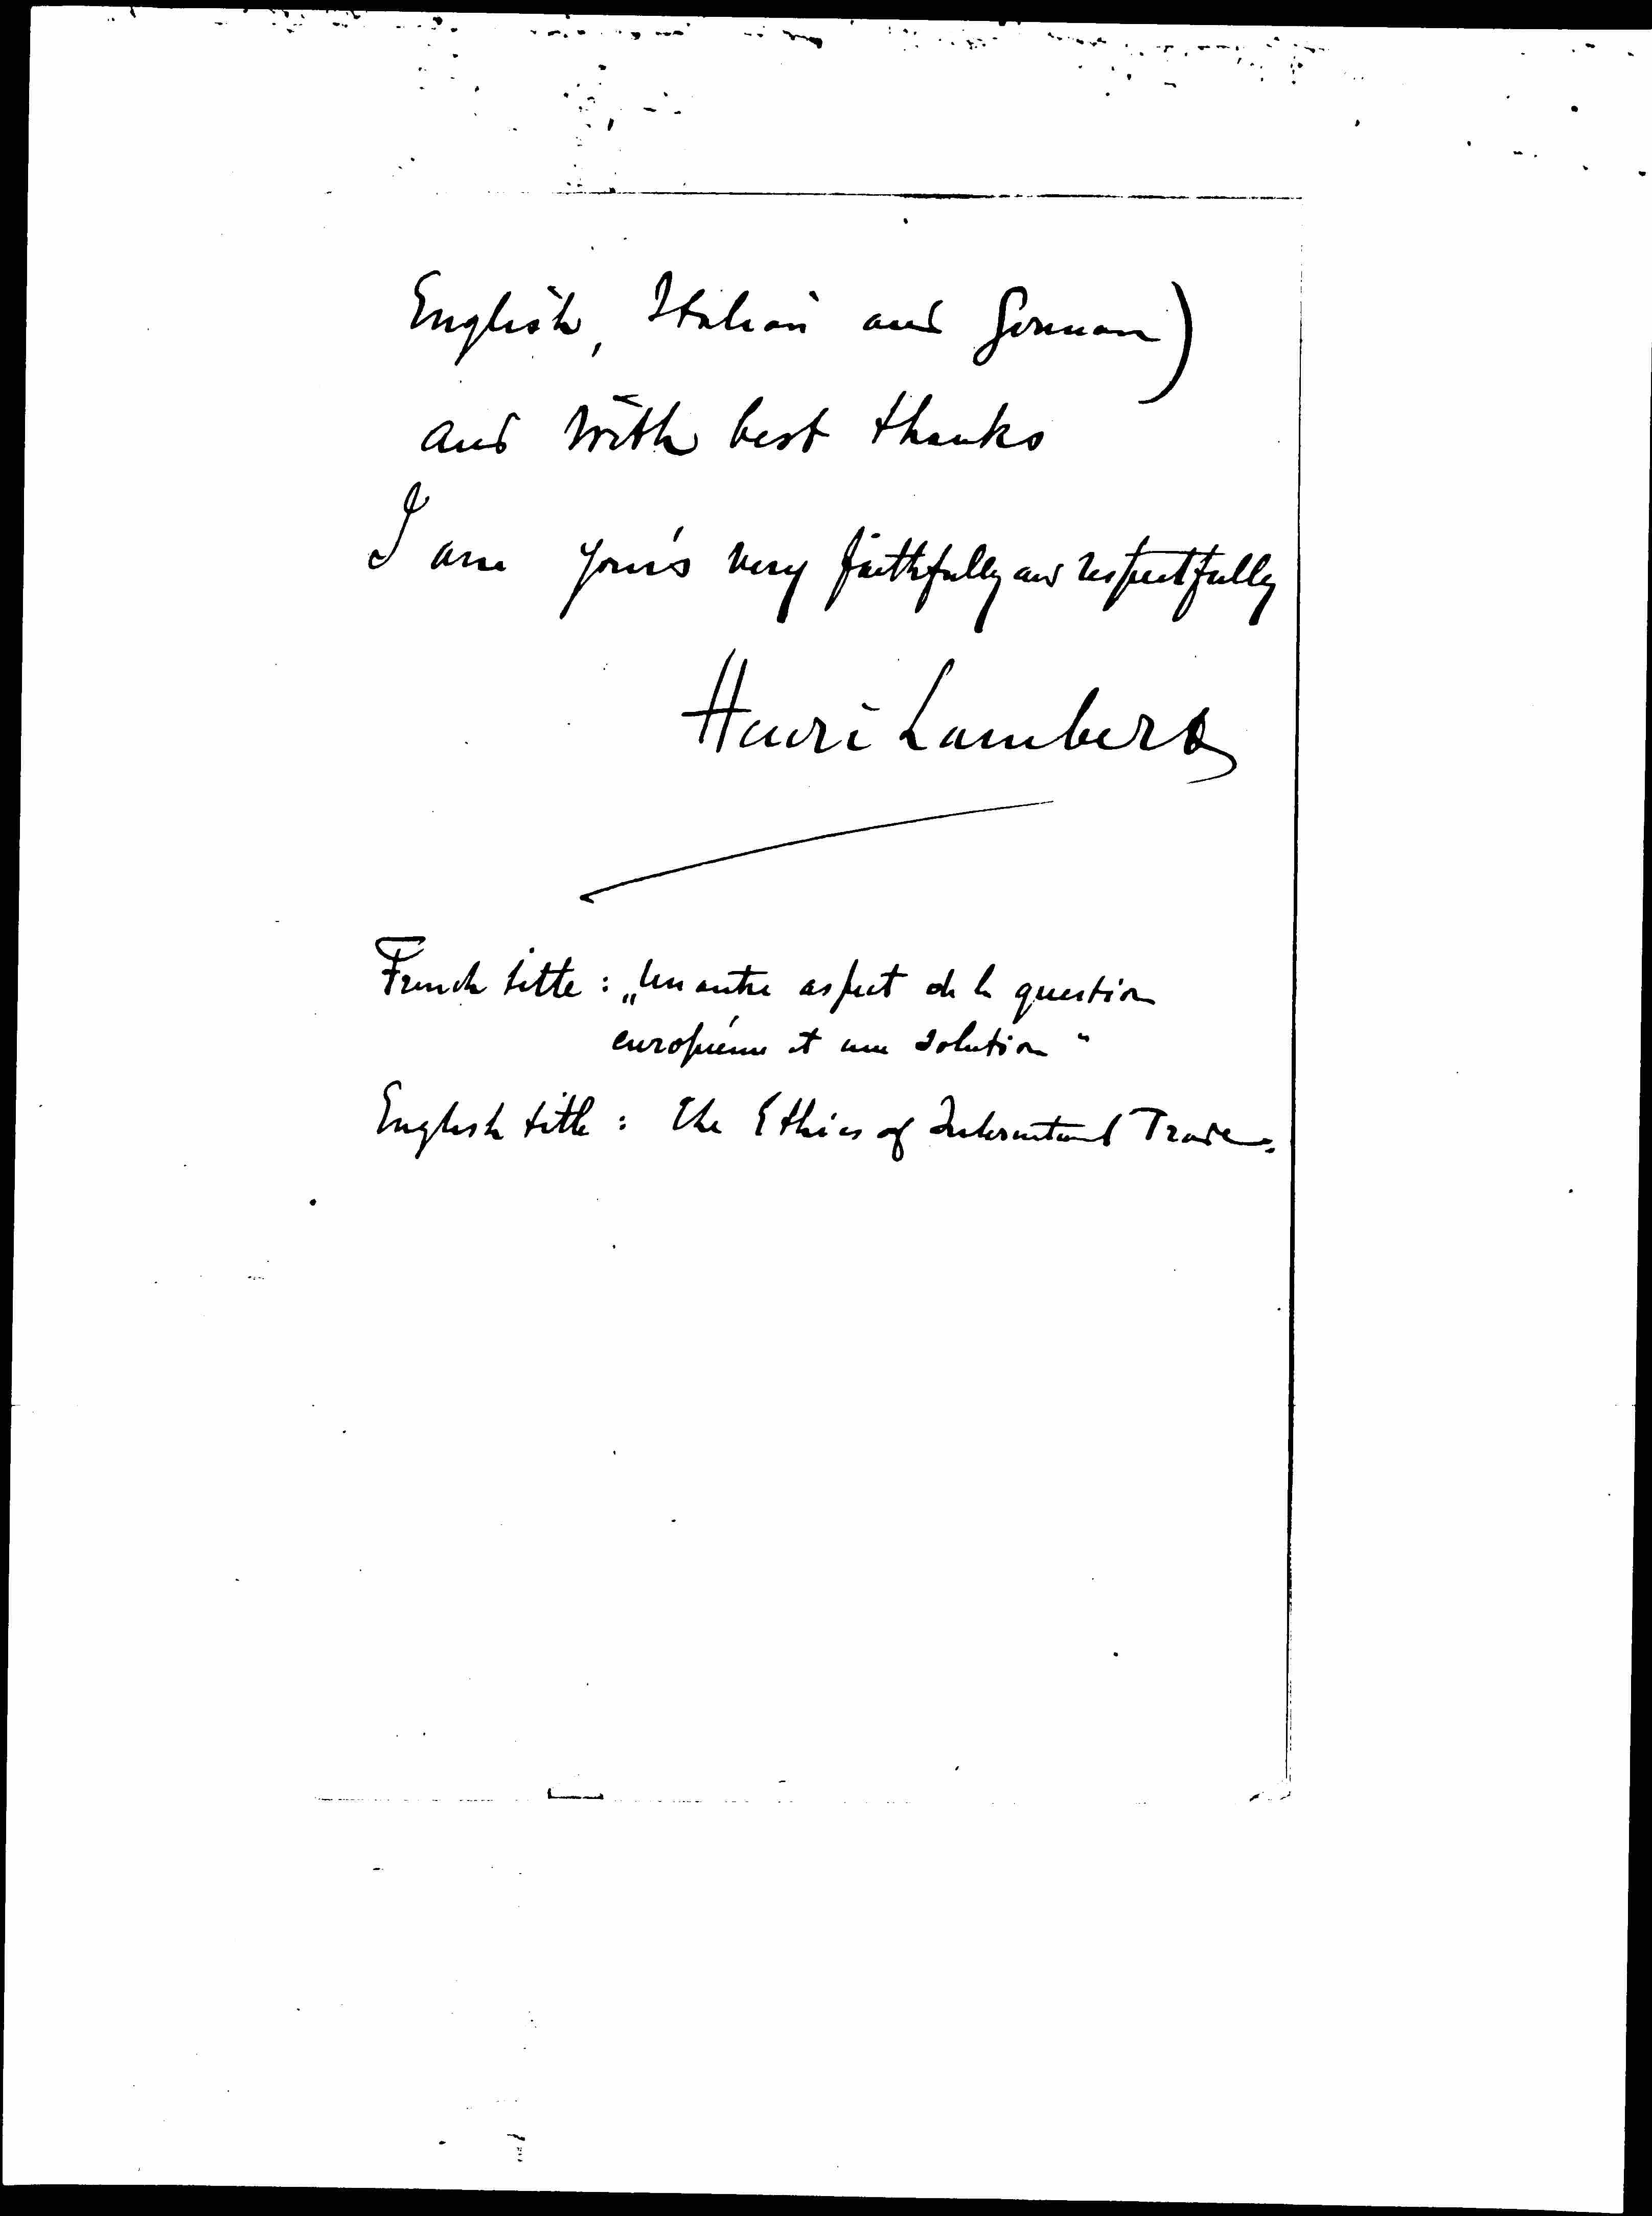 English, Italian and German)
and with best thanks
I am yours very faithfully and respectfully
Henri Lambert
French title : „Un autre aspect de la question
européenne et une solution“
English title : The Ethics of International Trade.